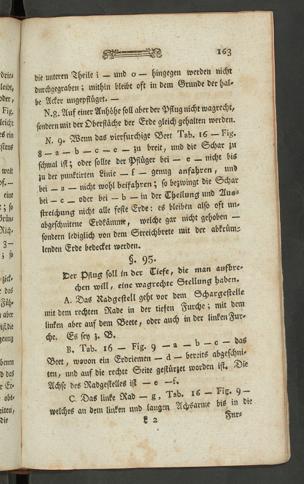 163
die unteren Theile i — und o — hingegen werden nicht
durchgegraben; mithin bleibt oft in dem Grunde der hal-
be Acker ungepflüget. —
N. 8. Auf einer Anhöhe soll aber der Pflug nicht wagrecht,
sondern mit der Oberfläche der Erde gleich gehalten werden.
N. 9. Wenn das vierfurchige Bett Tab. 16 — Fig.
8 — a — b — c — e — zu breit, und die Schar zu
schmal ist; oder sollte der Pflüger bei — e — nicht bis
zu der punktirten Linie — f — genug anfahren, und
bei — a — nicht wohl beifahren; so bezwingt die Schar
bei — c — oder bei — b — in der Theilung und Aus-
streichung nicht alle feste Erde: es bleiben also oft un-
abgeschnittene Erdkämme, welche gar nicht gehoben —
sondern lediglich von dem Streichbrete mit der abkrüm-
lenden Erde bedecket werden.
§. 95.
Der Pflug soll in der Tiefe, die man aufbre-
chen will, eine wagrechte Stellung haben.
A. Das Radgestell geht vor dem Schargestelle
mit dem rechten Rade in der tiefen Furche; mit dem
linken aber auf dem Beete, oder auch in der linken Fur-
che. Es sey z. B.
B. Tab. 16 — Fig. 9 — a — b — c — das
Bett, wovon ein Erdriemen — d — bereits abgeschni-
ten, und auf die rechte Seite gestürzet worden ist. Die
Achse des Radgestelles ist — e — f.
C. Das linke Rad — g, Tab. 16 — Fig. 9 —
welches an dem linken und langen Achsarme bis in die
2
Fur-